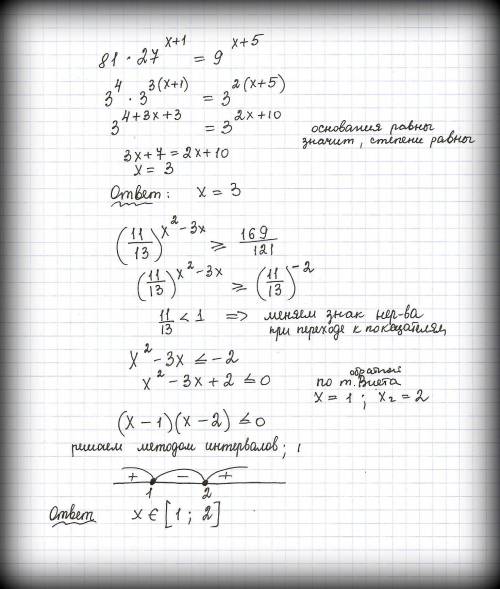 81 · 27^(x+1) = 9^(x+5)
3^4 · 3^(3(x+1)) = 3^(2(x+5))
3^(4+3x+3) = 3^(2x+10)
основания равны
значит, степени равны
3x+7 = 2x+10
x = 3
Ответ: x = 3
(11/13)^(x²-3x) ⩾ 169/121
(11/13)^(x²-3x) ⩾ (11/13)^(-2)
11/13 < 1 => меняем знак нер-ва
при переходе к показателям
x² - 3x ⩽ -2
x² - 3x + 2 ⩽ 0
обратной
по т. Виета
x = 1 ; x₂ = 2
(x - 1)(x - 2) ⩽ 0
решаем методом интервалов;
+ - +
1 2
Ответ x ∈ [1 ; 2]